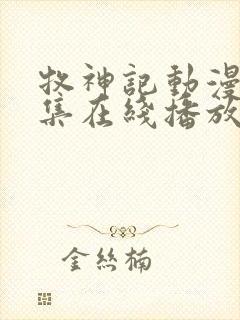 牧神記動漫
集在綫播放
金絲楠